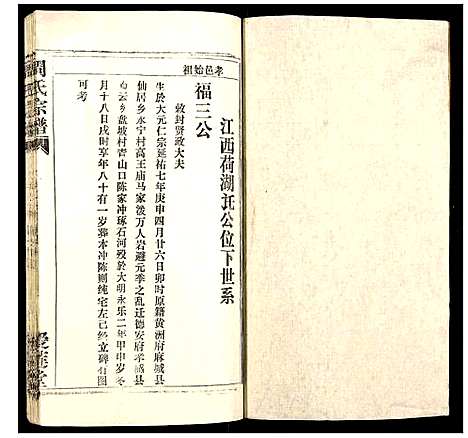 江西荷湖託公位下世系
孝邑始祖
福三公
敕封賢政大夫
生於大元仁宗延祐七年庚申四月廿六日卯时原籍黄洲府麻城县
仙居乡永宁村高王庙马家泼万人岩避元季之乱迁德安府孝感县
云乡盘坡村青山口陈家冲琢石河殁於大明永乐二年甲申岁冬
月十八日戌时享年八十有一岁葬本冲陈则纯宅左已经立碑有图
可考
周氏宗譜
愛蓮堂